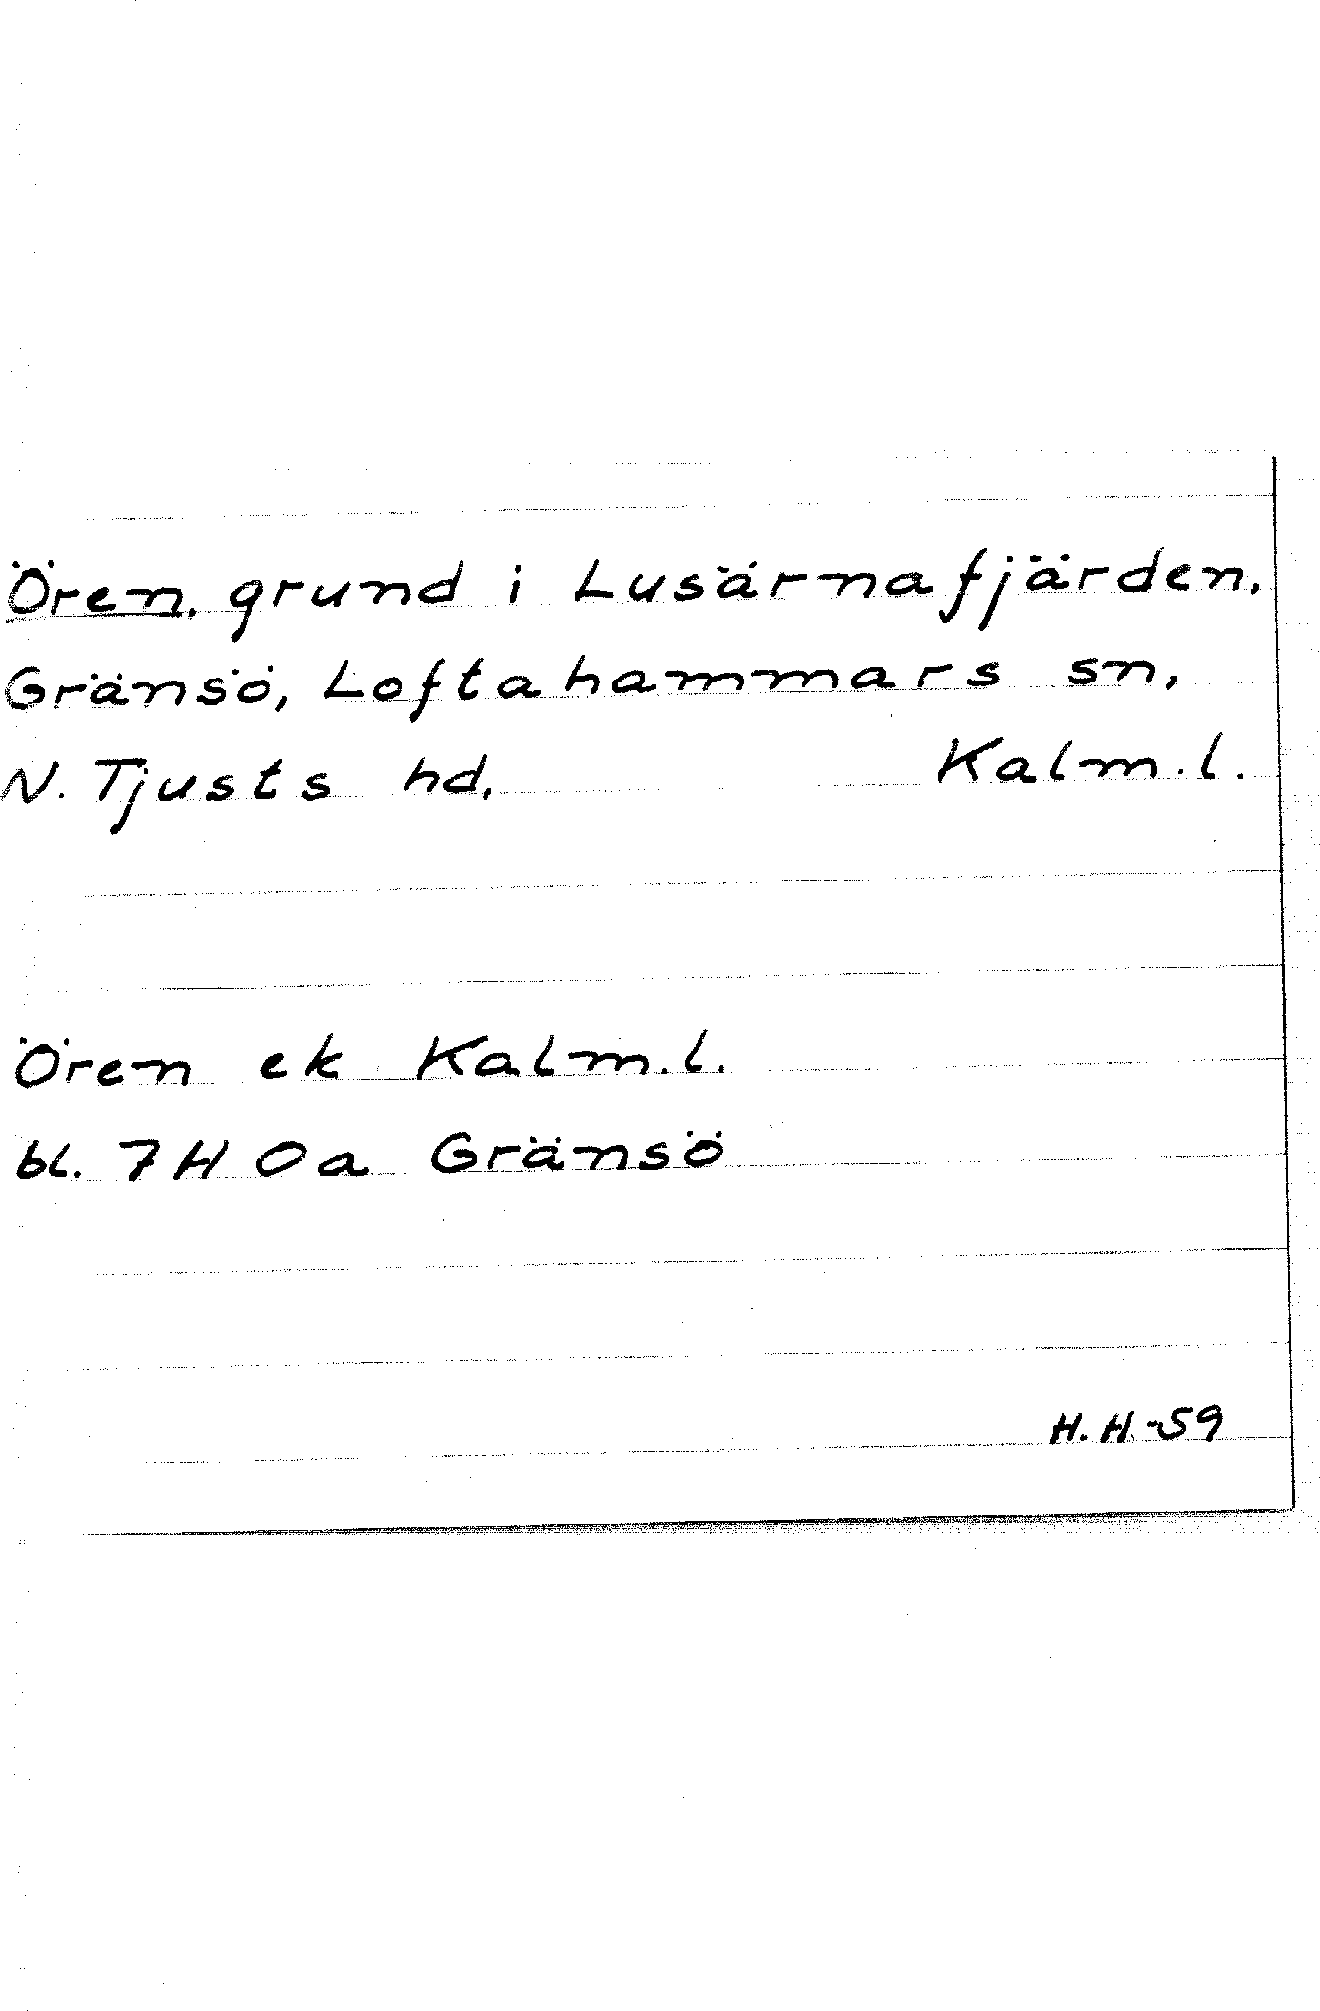 Ören, grund i Lusärnafjärden,
Gränsö, Loftahammars sn,
N. Tjusts hd, Kalm.l.
Ören ek Kalm.l.
bl. 7 H 0a Gränsö
H. H -59